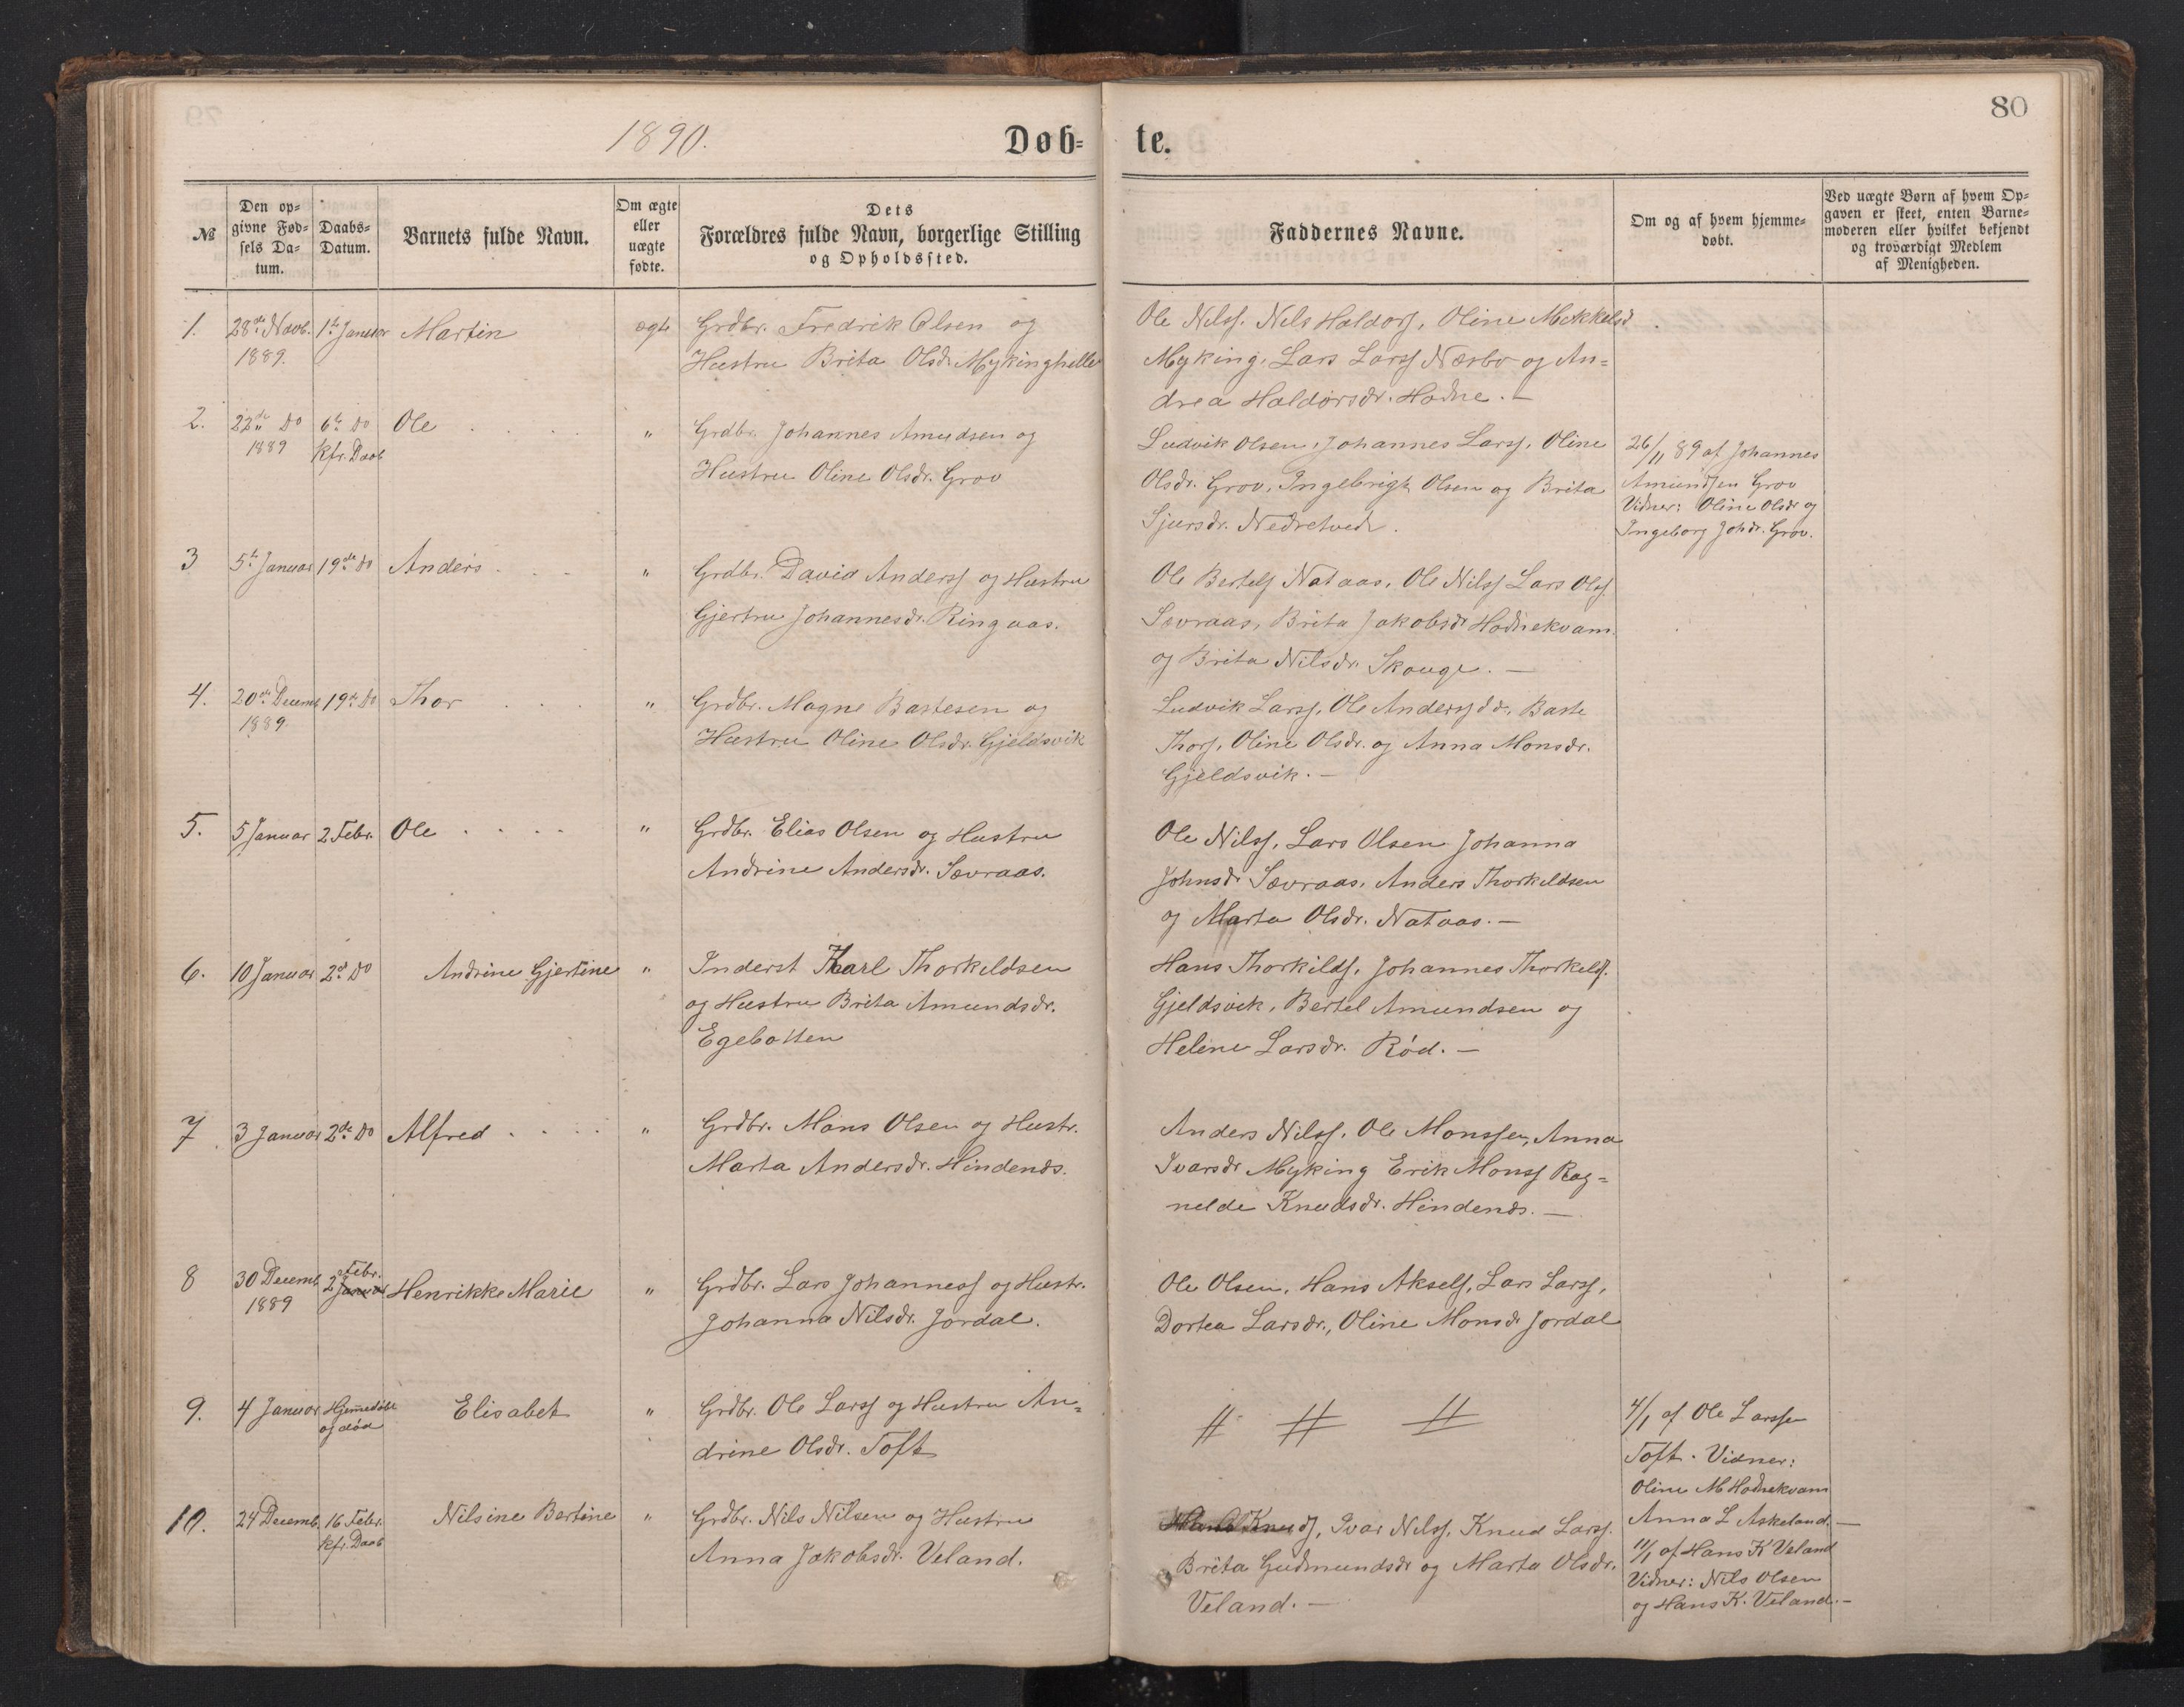 80
1890.
Døb-
te.
№
Den opgivne Fødsels Datum.
Daabs-Datum.
Barnets fulde Navn.
Om ægte eller uægte fødte.
Dets Forældres fulde Navn, borgerlige Stilling og Opholdssted.
Faddernes Navne.
Om og af hvem hjemmedøbt.
Ved uægte Børn af hvem Opgaven er skeet, enten Barnemoderen eller hvilket bekjendt og troværdigt Medlem af Menigheden.
1. 28de Novb. 1te Januar Martin ægte Grdbr. Fredrik Olsen og
1889. Hustru Brita Olsdr. Mykinghelle
Ole Nilss. Nils Haldors. Oline Mikkelsd
Myking, Lars Larss Næsbø og An=
drea Haldorsdr. Hodne. —
2. 22de Do 6te Do Ole . . . . " Grdbr. Johannes Amudsen og
1889 kfr. Daab Hustru Oline Olsdr. Grov
Ludvik Olsen, Johannes Larss, Oline
Olsdr. Grov, Ingebrigt Olsen og Brita
Sjursdr. Nedretvedt.
26/11 89 af Johannes
Amundsen Grov
Vidner: Oline Olsdr og
Ingeborg Johdr. Grov.
3 5te Januar 19de Do Anders . . . " Grdbr. David Anderss og Hustru
Gjertru Johannesdr. Ringaas.
Ole Bertels Nataas, Ole Nilss Lars Olss
Sævraas, Brita Jakobsdr Hodnekvam
og Brita Nilsdr. Skauge. —
4. 20de Decemb 19de Do Thor . . . " Grdbr. Magne Bastesen og
1889. Hustru Oline Olsdr. Gjeldsvik
Ludvik Larss, Ole Anderss dr., Baste
Thors, Oline Olsdr. og Anna Monsdr.
Gjeldsvik. —
5. 5 Januar 2 Febr. Ole . . . . " Grdbr. Elias Olsen og Hustru
Andrine Andersdr. Sævraas.
Ole Nilss, Lars Olsen Johanna
Johnsdr Sævraas, Anders Thorkildsen
og Marta Olsdr. Nataas. —
6. 10 Januar 2d Do Andrine Gjertine " Inderst Karl Thorkildsen
og Hustru Brita Amundsdr.
Egebotten
Hans Thorkilds, Johannes Thorkilds.
Gjeldsvik, Bertel Amundsen og
Helene Larsdr. Rød. —
7. 3 Januar 2de Do Alfred . . . . " Grdbr. Mons Olsen og Hustr.
Marta Andersdr. Hindenæs.
Anders Nilss, Ole Monssen, Anna
Ivarsdr Myking Erik Monss Rag=
nelde Knudsdr. Hindenæs. —
8 30 Decemb. 2 Januar Febr. Henrikke Marie " Grdbr. Lars Johanness og Hustr.
1889 Johanna Nilsdr. Jordal.
Ole Olsen, Hans Aksels, Lars Larss,
Dortea Larsdr., Oline Monsdr Jordal
9. 4 Januar Hjemmedøbt Elisabet " Grdbr. Ole Larss og Hustru An=
og død drine Olsdr. Toft
// // //
4/1 af Ole Larssen
Toft. Vidner:
Oline M Hodnekvam
Anna L Askeland. —
10. 24 Decemb. 16 Febr. Nilsine Bertine " Grdbr. Nils Nilsen og Hustru
kfr. Daab Anna Jakobsdr. Veland.
Hans Knuds, Ivar Nilss, Knud Larss.
Brita Gudmundsdr og Marta Olsdr.
Veland. —
11/1 af Hans K Veland
Vidner: Nils Olsen
og Hans K. Veland. —